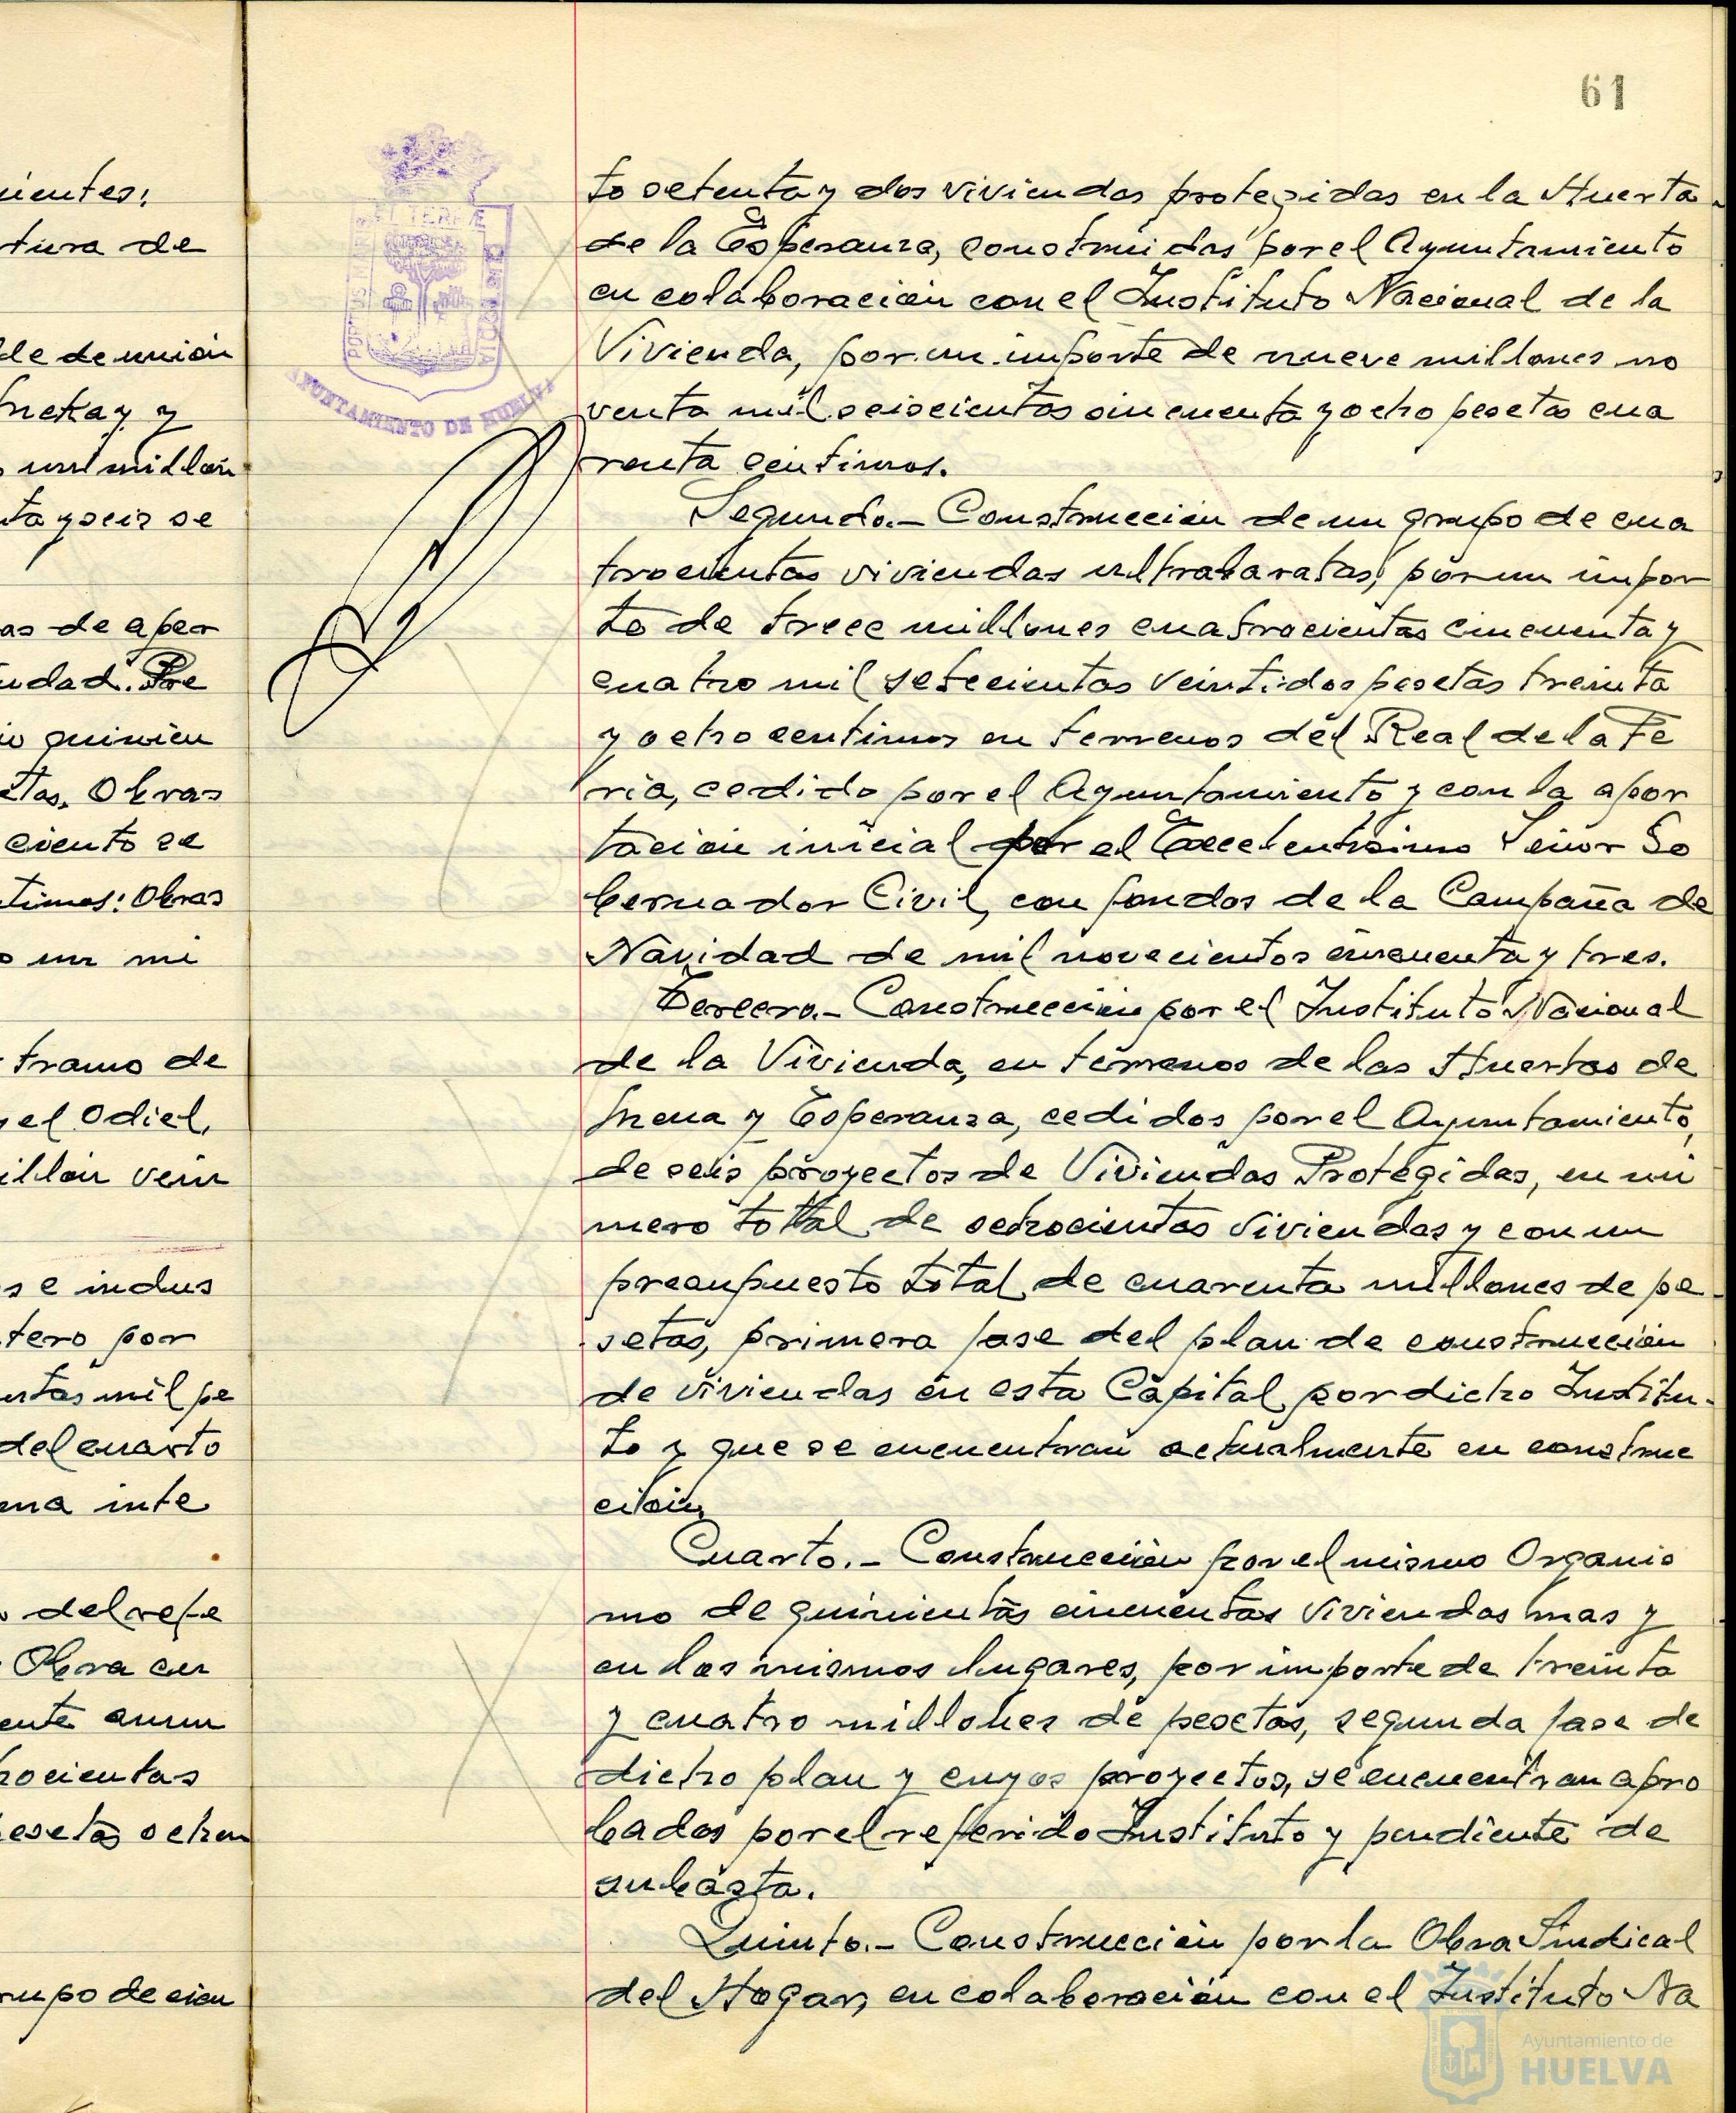 61
uientes:
tura de
de de unión
y
un millon
ta y seis se
as de aper
udad. Pre
quinien
tas. Obras
ciento se
timos: Obras
o un mi
tramo de
y el Odiel,
illón vein
s e indus
tero por
entas mil pe
del cuarto
una inte
o del refe
Obra en
ente aun
hocientas
esetas ochen
rupo de cien
PORTUS MARIS ET TERRÆ CUSTODIA
AYUNTAMIENTO DE HUELVA
to setenta y dos viviendas protegidas en la Huerta
de la Esperanza, construidas por el Ayuntamiento
en colaboración con el Instituto Nacional de la
Vivienda, por un importe de nueve millones no
venta mil seiscientas cincuenta y ocho pesetas cua
renta centimos.
Segundo.- Construcción de un grupo de cua
trocientas viviendas ultrabaratas, por un impor
te de trece millones cuatrocientas cincuenta y
cuatro mil setecientas veintidos pesetas treinta
y ocho centimos en terrenos del Real de la Fe
ria, cedido por el Ayuntamiento y con la apor
tación inicial por el Excelentisimo Señor Go
bernador Civil, con fondos de la Campaña de
Navidad de mil novecientos cincuenta y tres.
Tercero.- Construcción por el Instituto Nacional
de la Vivienda, en terrenos de las Huertas de
Mena y Esperanza, cedidos por el Ayuntamiento,
de seis proyectos de Viviendas Protegidas, en nú
mero total de ochocientas viviendas y con un
presupuesto total de cuarenta millones de pe
setas, primera fase del plan de construcción
de viviendas en esta Capital por dicho Institu-
to y que se encuentran actualmente en construc
ción.
Cuarto.- Construcción por el mismo Organis
mo de quinientas cincuentas viviendas mas y
en los mismos lugares, por importe de treinta
y cuatro millones de pesetas, segunda fase de
dicho plan y cuyos proyectos, se encuentran apro
bados por el referido Instituto y pendiente de
subasta.
Quinto.- Construcción por la Obra Sindical
del Hogar, en colaboración con el Instituto Na
Ayuntamiento de
HUELVA